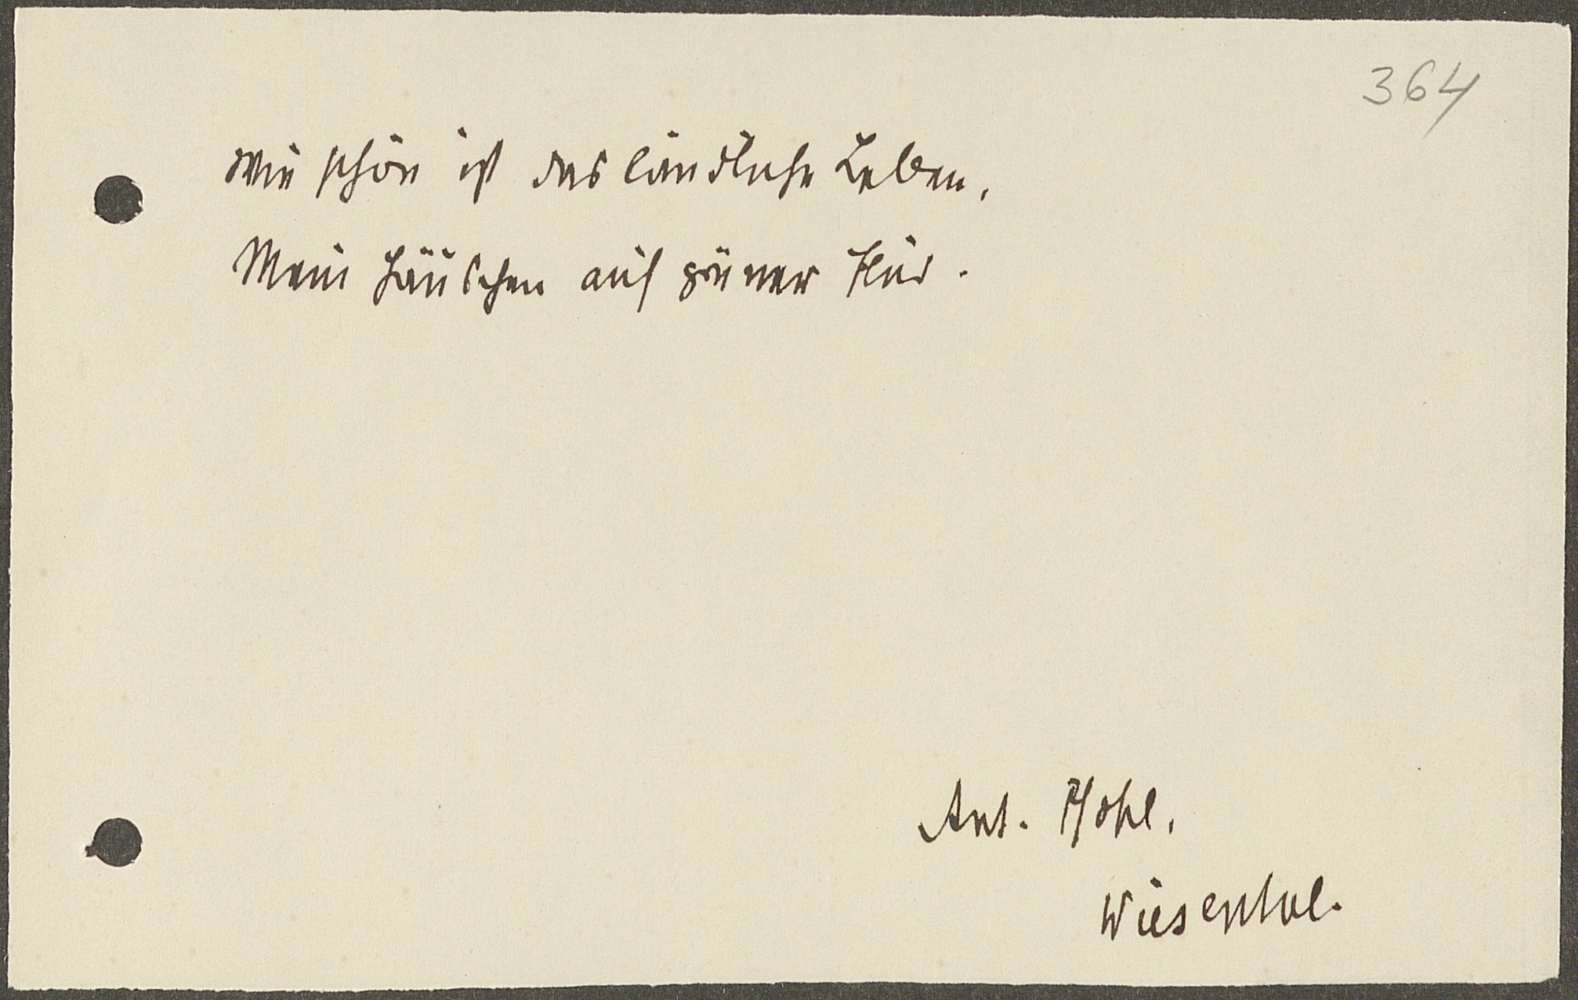 364
Wie schön ist das ländliche Leben,
Mein Häuschen auf grüner Flur.
Ant. Pfohl,
Wiesenthal.